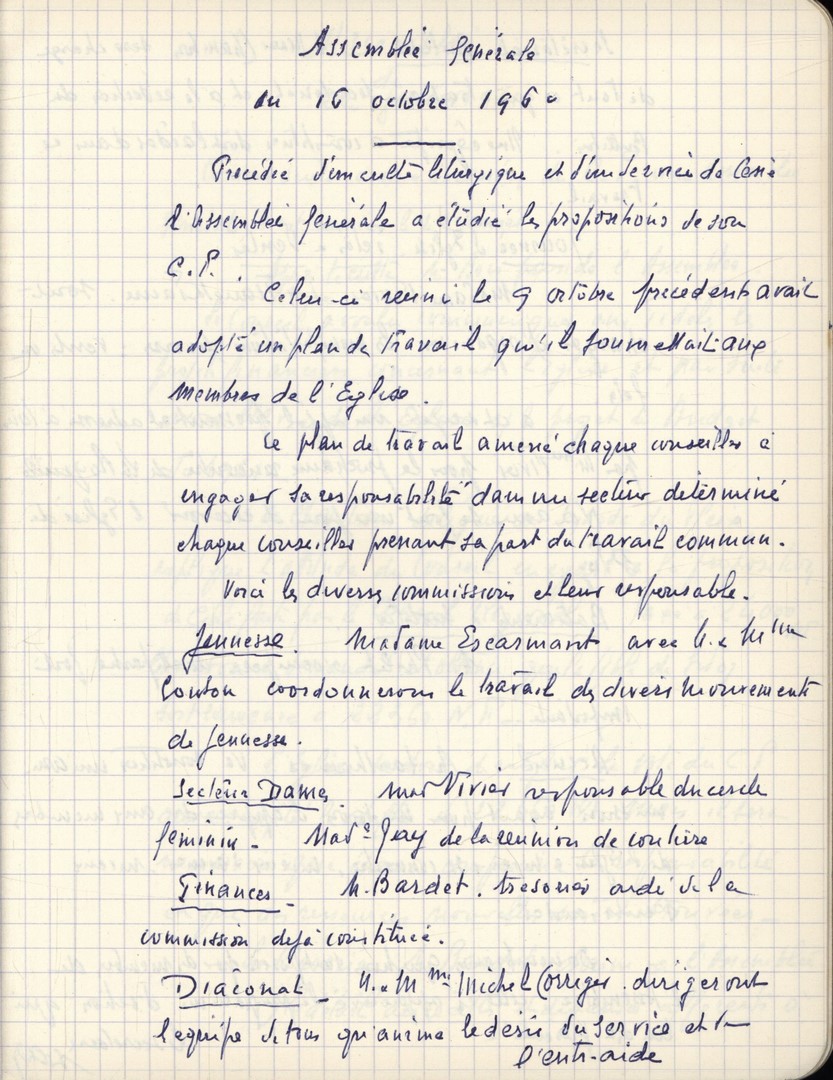 Assemblée Générale
du 16 octobre 1960
Précédée d'un culte liturgique et d'un service de Cène
l'Assemblée Générale a étudié les propositions de son
C.P.
Celui-ci réuni le 9 octobre précédent avait
adopté un plan de travail qu'il soumettait aux
membres de l'Eglise.
Ce plan de travail amené chaque conseiller à
engager sa responsabilité dans un secteur déterminé
chaque conseiller prenant sa part du travail commun.
Voici les diverses commissions et leur responsable.
Jeunesse. Madame Escarmant avec M. & Mme
Couton coordonnerons le travail des divers mouvements
de jeunesse.
Secteur Dames. Mad Vivier responsable du cercle
féminin - Made Jay de la réunion de couture
Finances - M. Bardet. trésorier aidé de la
commission déjà constituée.
Diaconat - M. & Mme Michel Corriger. dirigeront
l'équipe de tous qu'anime le désir du service et de
l'entr-aide